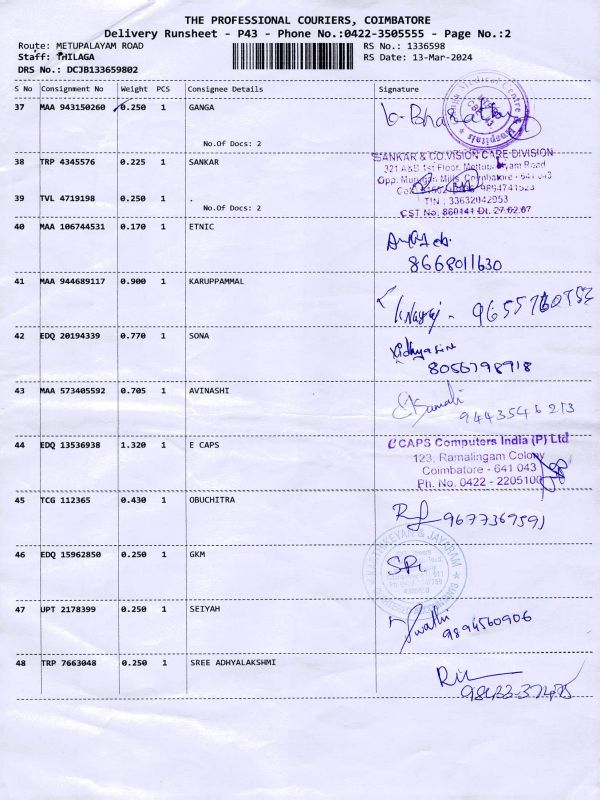 THE PROFESSIONAL COURIERS, COIMBATORE
Delivery Runsheet - P43 - Phone No.:0422-3505555 - Page No.:2
Route: METUPALAYAM ROAD
Staff: THILAGA
DRS No.: DCJB133659802
RS No.: 1336598
RS Date: 13-Mar-2024
S No Consignment No Weight PCS Consignee Details Signature
37 MAA 943150260 0.250 1 GANGA
No.Of Docs: 2
38 TRP 4345576 0.225 1 SANKAR
SANKAR & CO.VISION CARE DIVISION
321 A&B 1st Floor, Mettupalayam Road
Opp. Murugan Mills, Coimbatore - 641 043
TIN : 33632042953
CST No. 860141 Dt. 27.02.07
39 TVL 4719198 0.250 1 .
No.Of Docs: 2
40 MAA 106744531 0.170 1 ETNIC
8668011630
41 MAA 944689117 0.900 1 KARUPPAMMAL
42 EDQ 20194339 0.770 1 SONA
Vidhyasri
8056798918
43 MAA 573405592 0.705 1 AVINASHI
9443546213
44 EDQ 13536938 1.320 1 E CAPS
CCAPS Computers India (P) Ltd
123, Ramalingam Colony
Coimbatore - 641 043
Ph. No. 0422 - 2205100
45 TCG 112365 0.430 1 OBUCHITRA
9677369591
46 EDQ 15962850 0.250 1 GKM
KARTHIKEYAN & JAYARAM
47 UPT 2178399 0.250 1 SEIYAH
Swathi
9894560906
48 TRP 7663048 0.250 1 SREE ADHYALAKSHMI